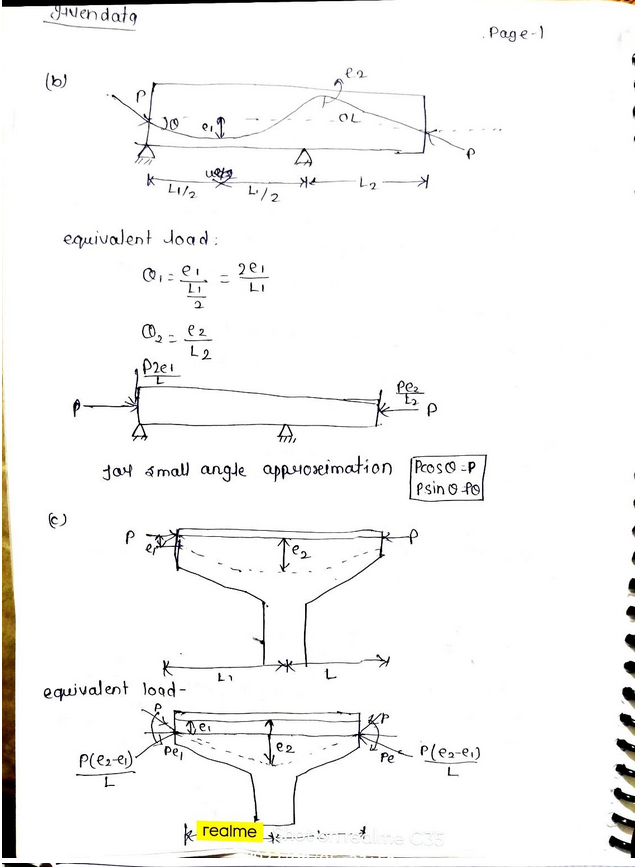 Given data
Page-1
(b)
P
e2
θ
e1
θL
P
L1/2
L1/2
L2
equivalent load:
θ1 = e1/(L1/2) = 2e1/L1
θ2 = e2/L2
P2e1/L
Pe2/L2
P
P
for small angle approximation
Pcosθ=P
Psinθ=Pθ
(c)
P
e1
e2
P
L1
L
equivalent load-
P
e1
P
Pe1
e2
Pe
P(e2-e1)/L
P(e2-e1)/L
realme
realme C35